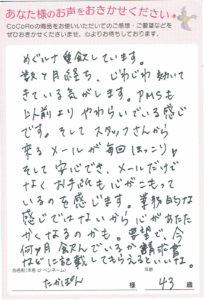 あなた様のお声をお聞かせください。
CoCoRoの商品をお使いいただいてのご感想・ご要望などを
ぜひお聞かせくださいませ。心よりお待ちしております。
めぐルナ愛飲しています。
数ヶ月経ち、じわじわ効いて
きている気がします。PMSも
以前よりやわらいでいる感じ
です。そしてスタッフさんから
来るメールが毎回ほっこり
そして安心でき、メールだけで
なくお手紙も心がこもって
いるのを感じます。業務的な
感じではないから心があたた
かくなるのかも。要望で、今
何ヶ月飲んでいるか請求書
などに記載してもらえるといいな。
お名前(本名 or ペンネーム) 年齢
たかぽん 様 43 歳